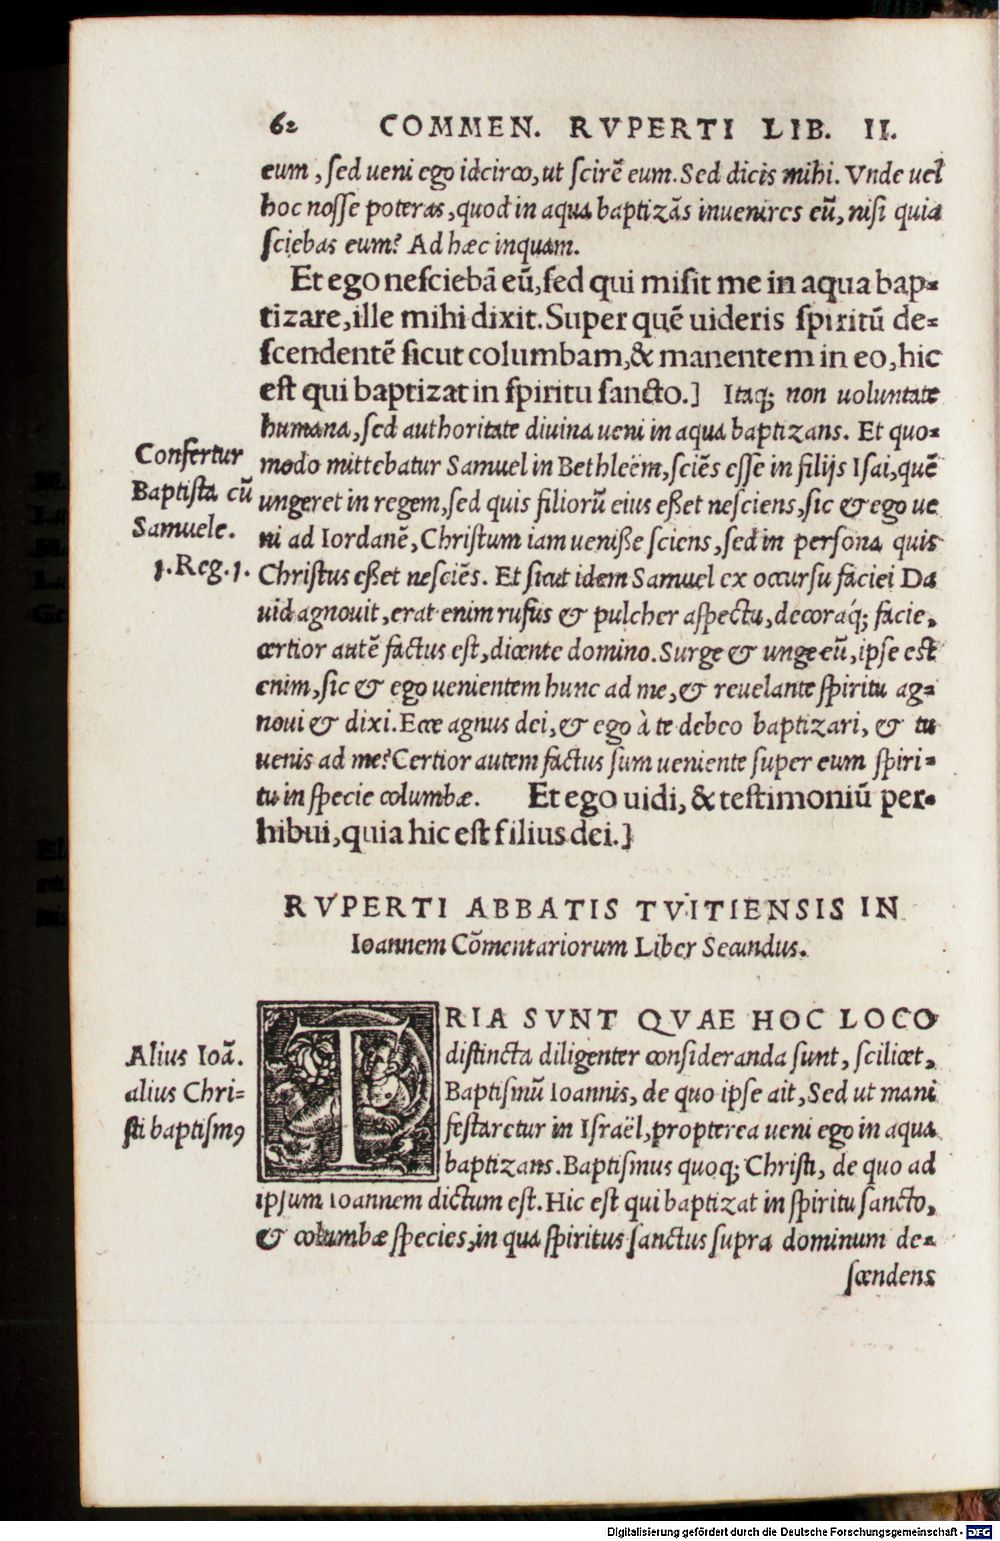 62 COMMEN. RVPERTI LIB. II.
eum, ſed ueni ego idcirco, ut ſcirē eum. Sed dicis mihi. Vnde uel
hoc noſſe poteras, quod in aqua baptizās inuenires eū, niſi quia
ſciebas eum? Ad hæc inquam.
Et ego neſciebā eū, ſed qui miſit me in aqua bap-
tizare, ille mihi dixit. Super quē uideris ſpiritū de-
ſcendentē ſicut columbam, & manentem in eo, hic
eſt qui baptizat in ſpiritu ſancto.] Itaq; non uoluntate
humana, ſed authoritate diuina ueni in aqua baptizans. Et quo-
modo mittebatur Samuel in Bethleëm, ſciēs eſſe in filijs Iſai, quē
ungeret in regem, ſed quis filiorū eius eßet neſciens, ſic & ego ue
ni ad Iordanē, Chriſtum iam ueniße ſciens, ſed in perſona quis
Chriſtus eßet neſciēs. Et ſicut idem Samuel ex occurſu faciei Da
uid agnouit, erat enim rufus & pulcher aſpectu, decoraq́; facie,
certior autē factus eſt, dicente domino. Surge & unge eū, ipſe eſt
enim, ſic & ego uenientem hunc ad me, & reuelante ſpiritu ag-
noui & dixi. Ecce agnus dei, & ego à te debeo baptizari, & tu
uenis ad me? Certior autem factus ſum ueniente ſuper eum ſpiri-
tu in ſpecie columbæ. Et ego uidi, & teſtimoniū per-
hibui, quia hic eſt filius dei.]
Confertur
Baptiſta cū
Samuele.
1. Reg. 1.
RVPERTI ABBATIS TVITIENSIS IN
Ioannem Cōmentariorum Liber Secundus.
TRIA SVNT QVAE HOC LOCO
diſtincta diligenter conſideranda ſunt, ſcilicet,
Baptiſmū Ioannis, de quo ipſe ait, Sed ut mani
feſtaretur in Iſraël, propterea ueni ego in aqua
baptizans. Baptiſmus quoq; Chriſti, de quo ad
ipſum Ioannem dictum eſt. Hic eſt qui baptizat in ſpiritu ſancto,
& columbæ ſpecies, in qua ſpiritus ſanctus ſupra dominum de-
ſcendens
Alius Ioā.
alius Chri-
ſti baptiſmꝯ
Digitalisierung gefördert durch die Deutsche Forschungsgemeinschaft - DFG